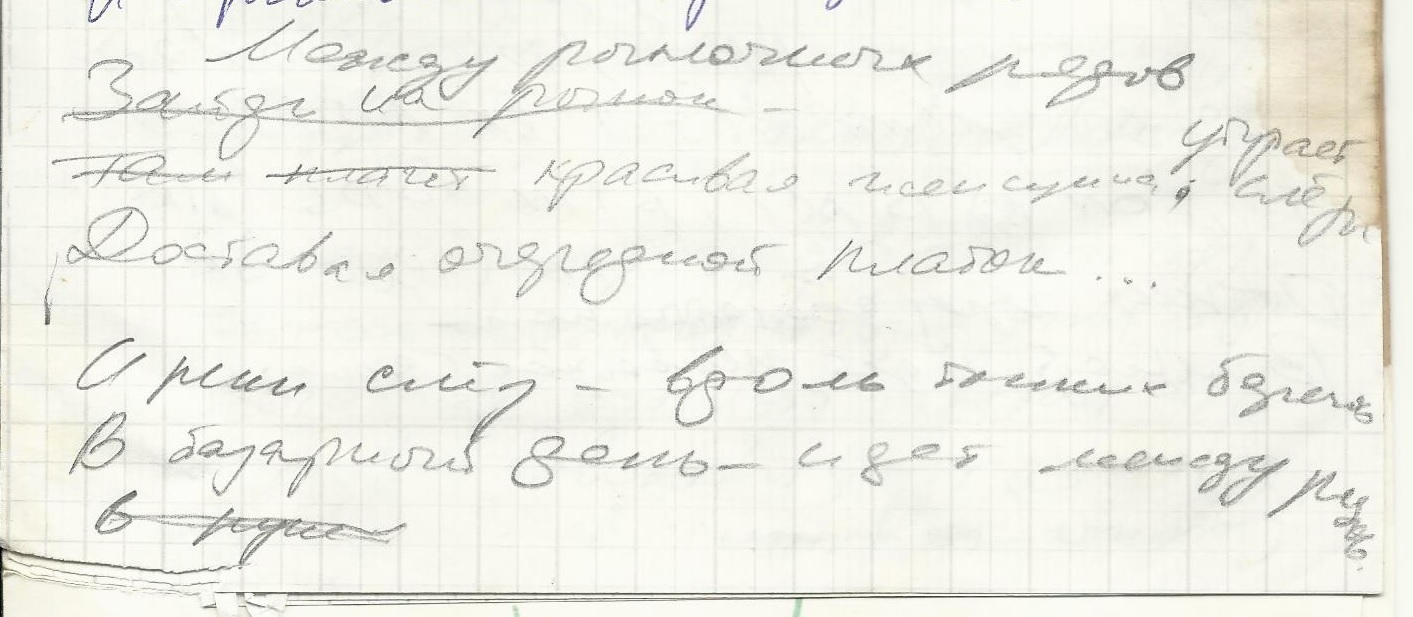 Между рыночных рядов
Зайди на рынок -
утирает
Там плачет красивая женщина, слёзы
Доставая очередной платок...
И реки слёз – вдоль тонких берегов
В базарный день – идет между рядов.
в